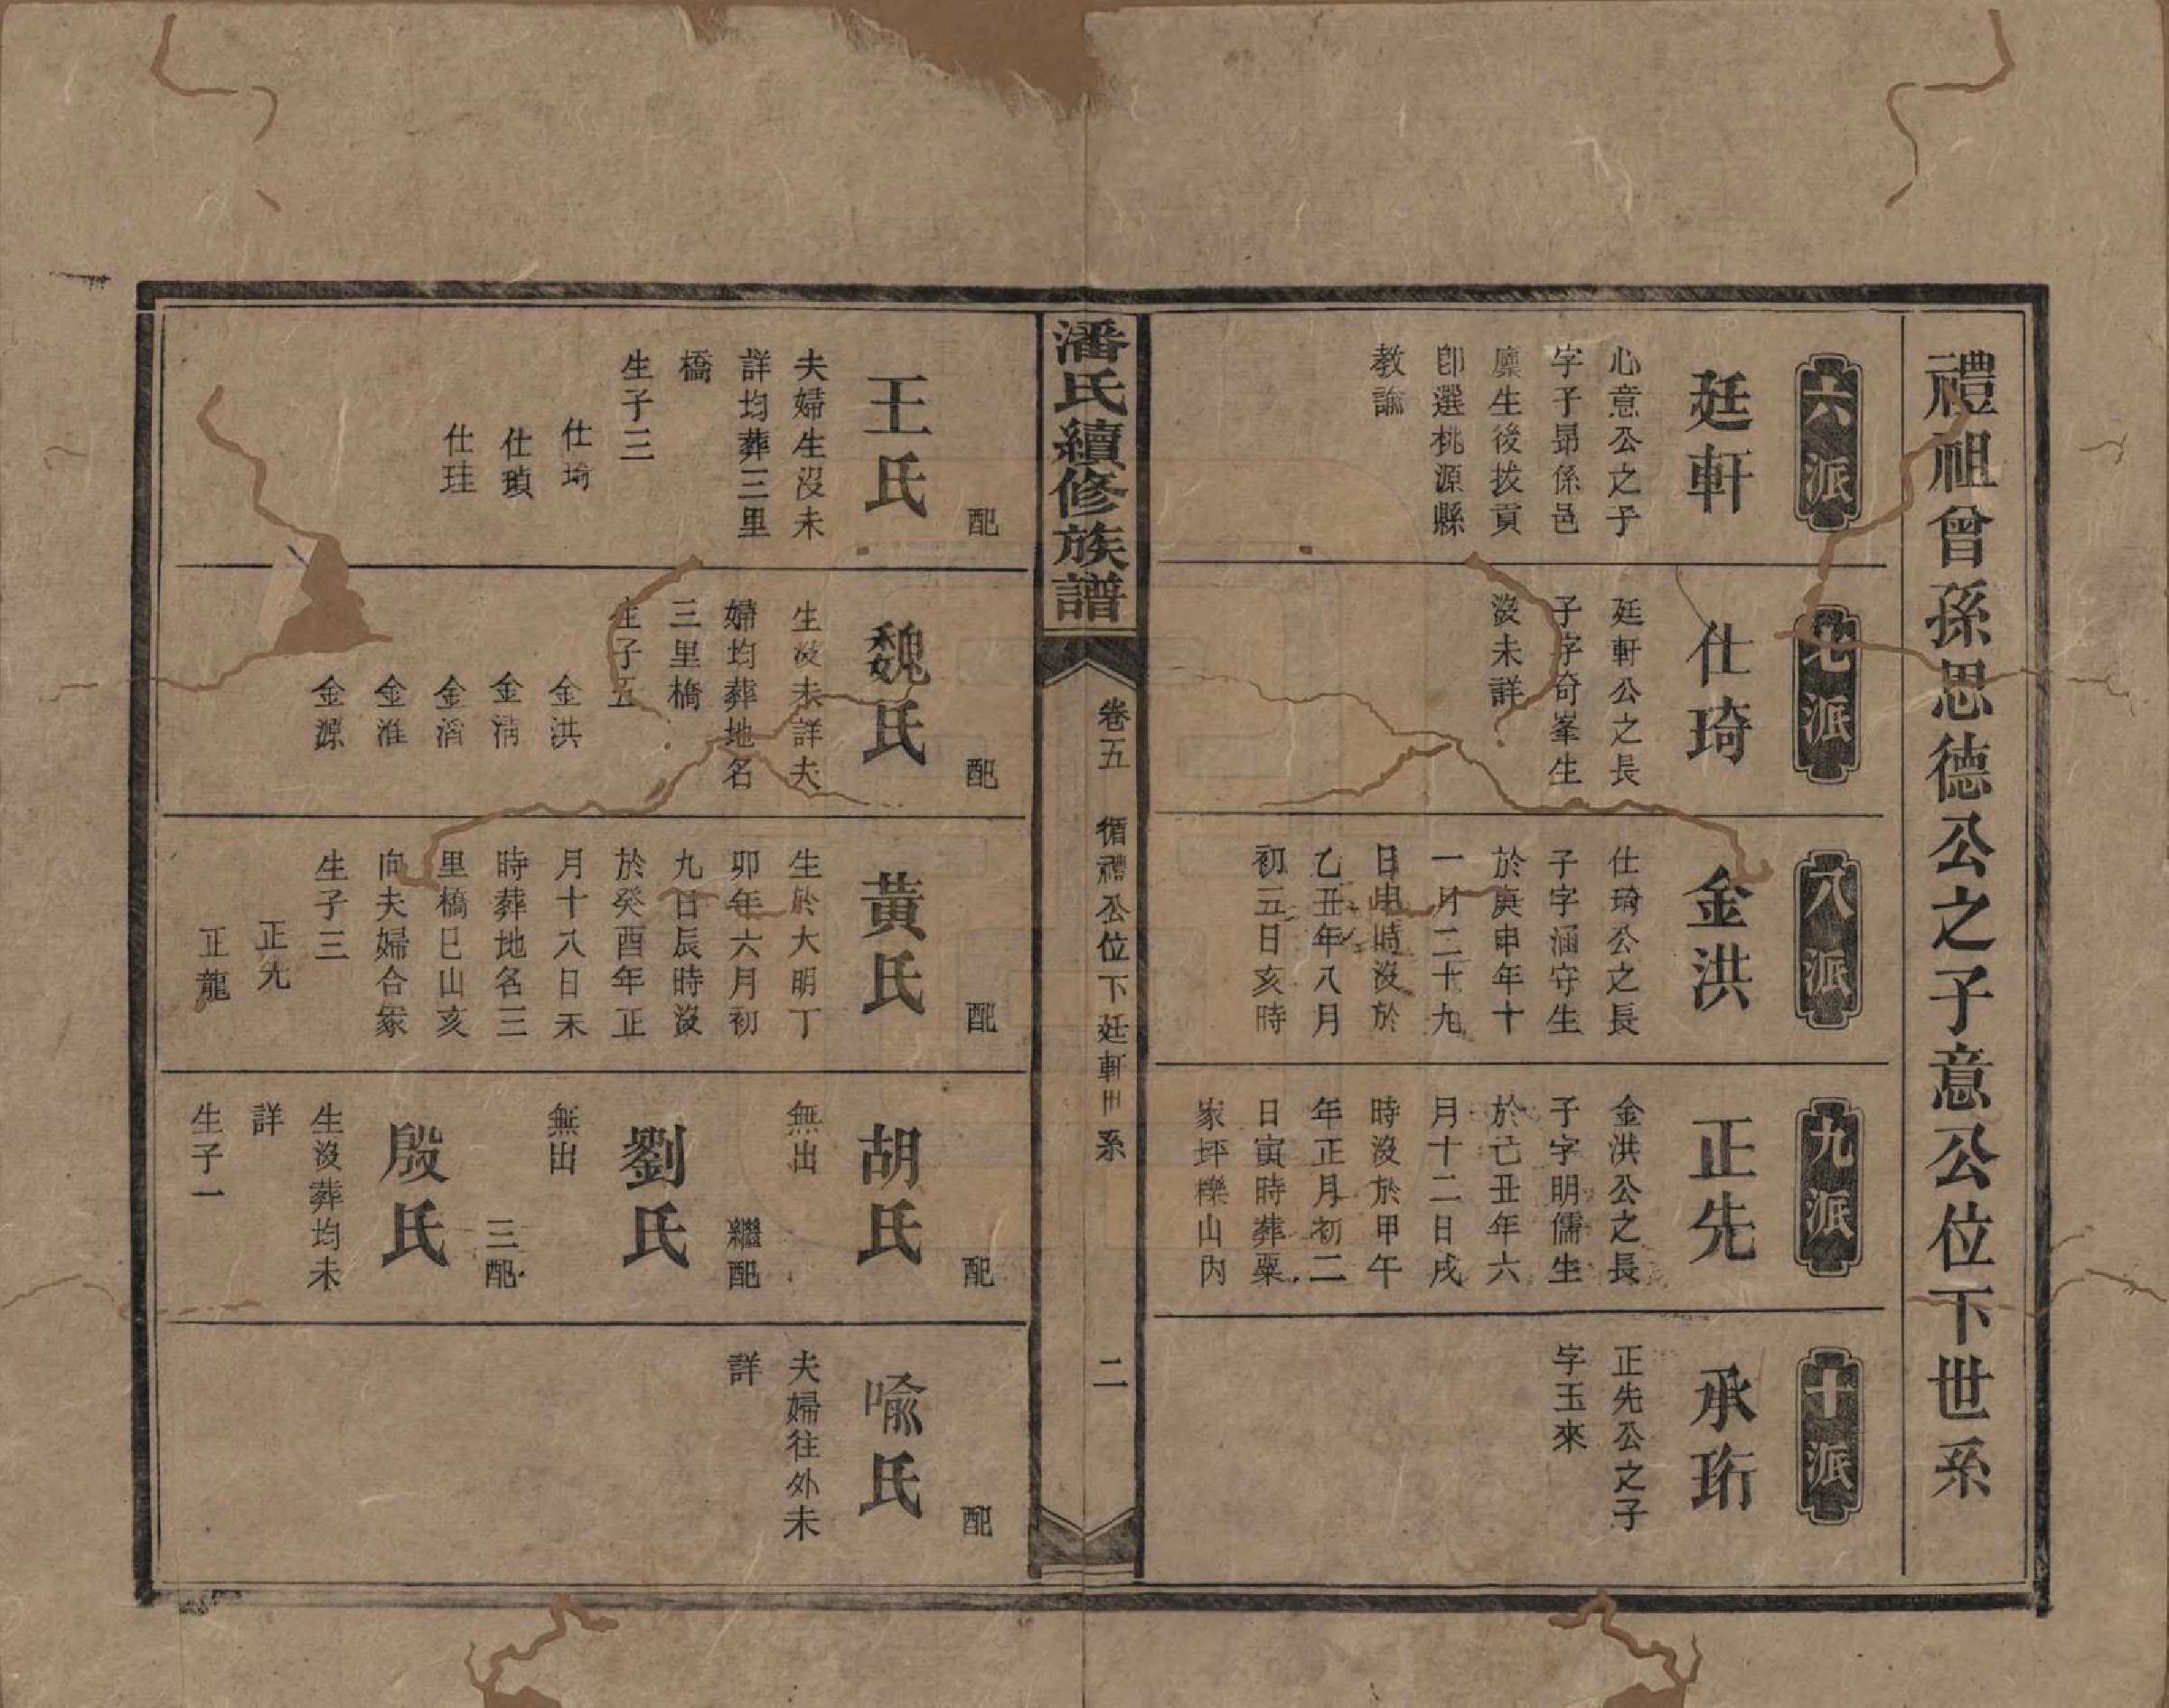 禮祖曾孫思德公之子意公位下世系
六派
廷軒
心意公之子
字子昻係邑
廩生後拔貢
卽選桃源縣
教諭
七派
仕琦
廷軒公之長
子字奇峯生
沒未詳
八派
金洪
仕琦公之長
子字涵守生
於庚申年十
一月二十九
日申時沒於
乙丑年八月
初五日亥時
九派
正先
金洪公之長
子字明儒生
於己丑年六
月十二日戌
時沒於甲午
年正月初二
日寅時葬粟
家坪櫟山內
十派
承珩
正先公之子
字玉來
潘氏續修族譜
卷五 循禮公位下廷軒世系 二
配
王氏
夫婦生沒未
詳均葬三里
橋
生子三
仕琦
仕瑱
仕珪
配
魏氏
生沒未詳夫
婦均葬地名
三里橋
生子五
金洪
金淸
金淯
金淮
金源
配
黃氏
生於大明丁
卯年六月初
九日辰時沒
於癸酉年正
月十八日未
時葬地名三
里橋巳山亥
向夫婦合冢
生子三
正先
正龍
配
胡氏
無出
繼配
劉氏
無出
三配
殷氏
生沒葬均未
詳
生子一
配
喩氏
夫婦往外未
詳